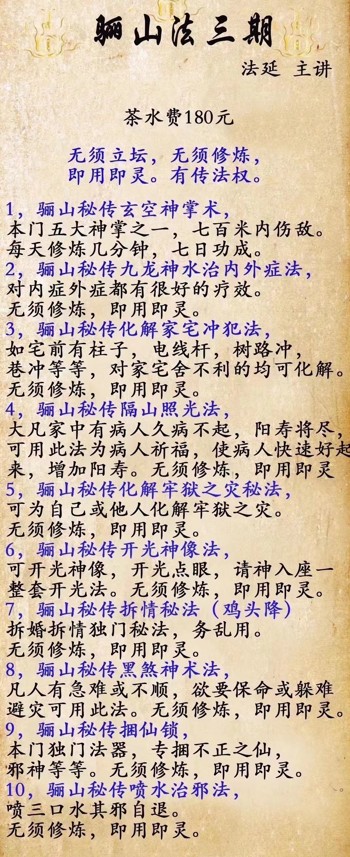 骊山法三期
法延 主讲
茶水费180元
无须立坛，无须修炼，
即用即灵。有传法权。
1，骊山秘传玄空神掌术，
本门五大神掌之一，七百米内伤敌。
每天修炼几分钟，七日功成。
2，骊山秘传九龙神水治内外症法，
对内症外症都有很好的疗效。
无须修炼，即用即灵。
3，骊山秘传化解家宅冲犯法，
如宅前有柱子，电线杆，树路冲，
巷冲等等，对家宅舍不利的均可化解。
无须修炼，即用即灵。
4，骊山秘传隔山照光法，
大凡家中有病人久病不起，阳寿将尽，
可用此法为病人祈福，使病人快速好起
来，增加阳寿。无须修炼，即用即灵
5，骊山秘传化解牢狱之灾秘法，
可为自己或他人化解牢狱之灾。
无须修炼，即用即灵。
6，骊山秘传开光神像法，
可开光神像，开光点眼，请神入座一
整套开光法。无须修炼，即用即灵。
7，骊山秘传拆情秘法（鸡头降）
拆婚拆情独门秘法，务乱用。
无须修炼，即用即灵。
8，骊山秘传黑煞神术法，
凡人有急难或不顺，欲要保命或躲难
避灾可用此法。无须修炼，即用即灵。
9，骊山秘传捆仙锁，
本门独门法器，专捆不正之仙，
邪神等等。无须修炼，即用即灵。
10，骊山秘传喷水治邪法，
喷三口水其邪自退。
无须修炼，即用即灵。